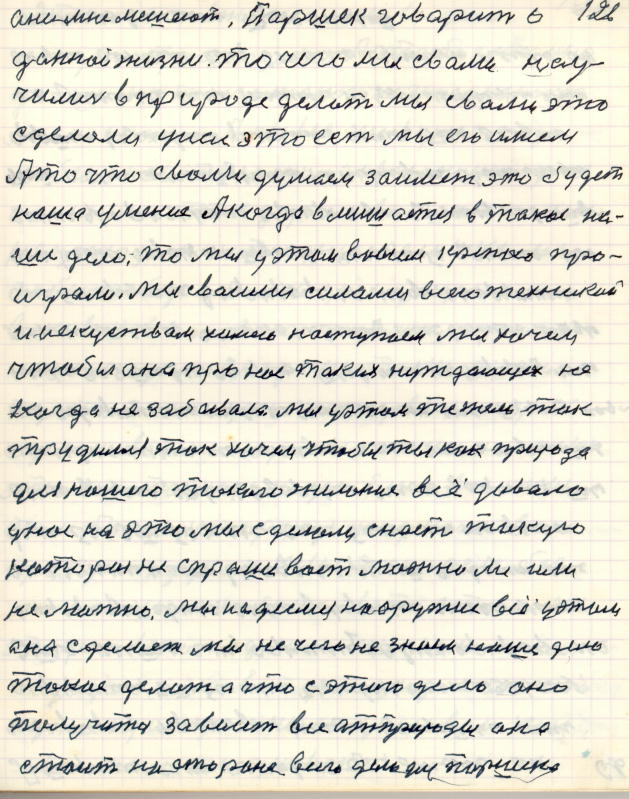 она мне мешает, Паршек говарит о 126
данной жизни. то чего мы свами нау-
чились в природе делат мы свами это
сделали унас это ест мы его имеем
А то что свами думаем займет это будет
наша умение А когда вмишается в такое на-
ши дело, то мы уэтом вовсем крепко про-
играли. мы своими силами всего техникой
и искуствам хамы наступаем мы хочем
чтобы ана про нас таких нуждающех не
когда не забывала мы уэтом тежело так
трудимся так хочем чтобы ты как природа
для нашего такого жилание всё давало
унас на это мы сделали снаст такую
котороя не спрашивает можно ли или
не можно. мы надеемся на оружие всё уэтом
ана сделает мы не чего не знаем наше дело
такое делат а что с этого дело оно
получится завесит все атприроды она
стоит на стороне всего дела для паршика